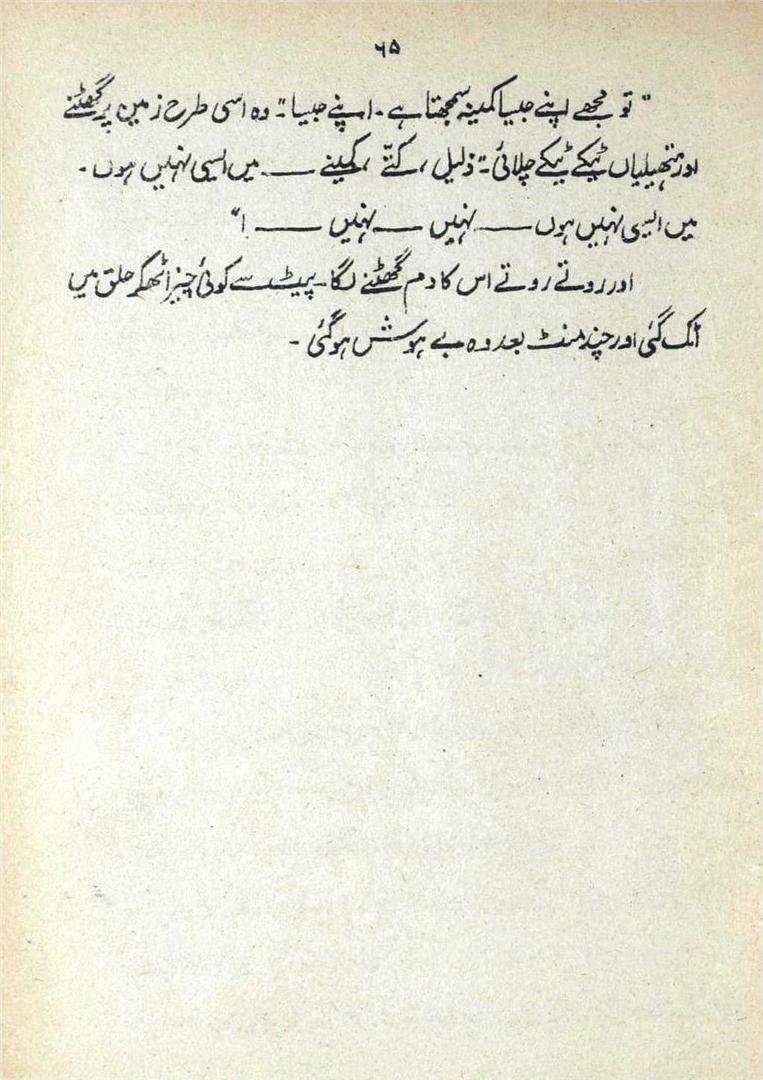 ۶۵
" تو مجھے اپنے جیسا کمینہ سمجھتا ہے۔ اپنے جیسا " وہ اسی طرح زمین پر گھٹنے
اور ہتھیلیاں ٹیکے ٹیکے چلائی۔ " ذلیل ، کتّے ، کمینے —— میں ایسی نہیں ہوں۔
میں ایسی نہیں ہوں —— نہیں —— نہیں —— !"
اور روتے روتے اس کا دم گھٹنے لگا۔ پیٹ سے کوئی چیز اٹھ کر حلق میں
اٹک گئی اور چند منٹ بعد وہ بے ہوش ہو گئی ۔